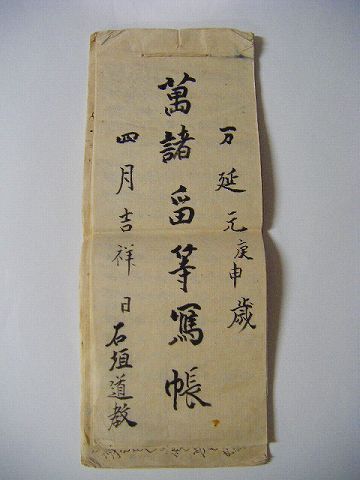 万延元庚申歳
萬諸留等寫帳
四月吉祥日 石垣道教